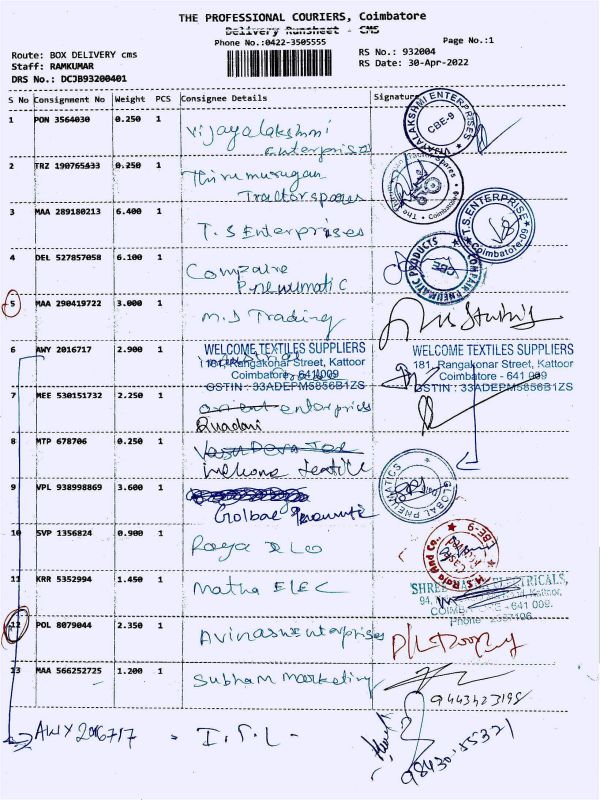 THE PROFESSIONAL COURIERS, Coimbatore
Delivery Runsheet - CMS
Phone No.:0422-3505555
Page No.:1
Route: BOX DELIVERY cms
Staff: RAMKUMAR
DRS No.: DCJB93200401
RS No.: 932004
RS Date: 30-Apr-2022
S No Consignment No Weight PCS Consignee Details Signature
1 PON 3564030 0.250 1 Vijayalakshmi
Enterprises
VIJAYALAKSHMI ENTERPRISES
CBE-9
2 TRZ 190765433 0.250 1 Thirumurugan
Tractor spares
Tractor Spares
Coimbatore
3 MAA 289180213 6.400 1 T.S Enterprises
T.S. ENTERPRISE
Coimbatore-09
4 DEL 527857058 6.100 1 Compaire
Pneumatic
COMPAIR PNEUMATIC PRODUCTS
CBE
5 MAA 290419722 3.000 1 M.S Trading
6 AWY 2016717 2.900 1
WELCOME TEXTILES SUPPLIERS
181, Rangakonar Street, Kattoor
Coimbatore - 641 009
GSTIN : 33ADEPM5856B1ZS
WELCOME TEXTILES SUPPLIERS
181, Rangakonar Street, Kattoor
Coimbatore - 641 009
GSTIN : 33ADEPM5856B1ZS
7 MEE 530151732 2.250 1 orient enterprices
8 MTP 678706 0.250 1
welkome textile
9 VPL 938998869 3.600 1
Golbae
GLOBAL PNEUMATICS
10 SVP 1356824 0.900 1 Raya & Co
Raja And Co.,
CBE-9
11 KRR 5352994 1.450 1 Matha ELEC
SHREE ELECTRICALS,
94, Kattoor,
COIMBATORE - 641 009.
Phone :
12 POL 8079044 2.350 1 Avinash Enterprises
13 MAA 566252725 1.200 1 Subham Marketing
9443423198
AWY 2016717 - I.S.L -
98430-55321